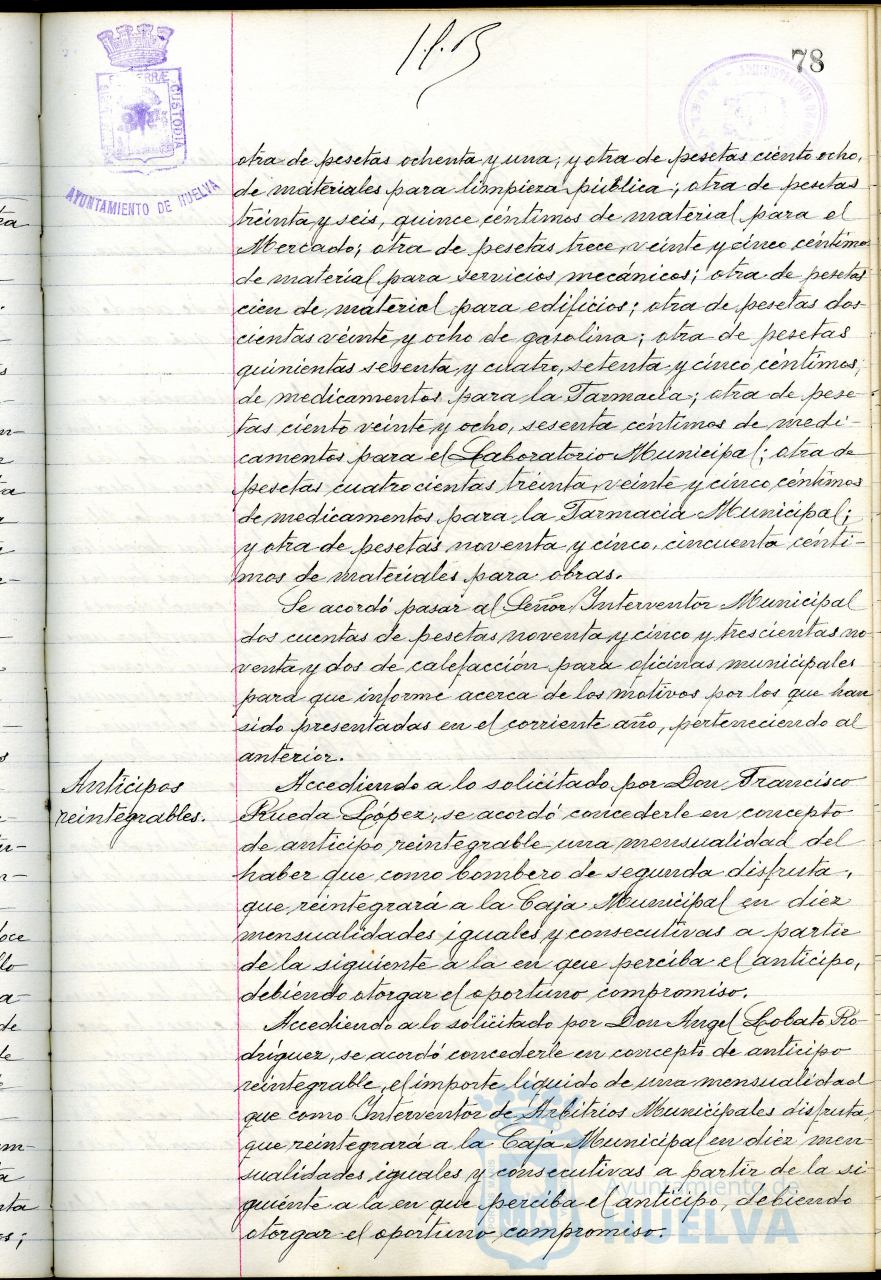 78
CUSTODIA
AYUNTAMIENTO DE HUELVA
otra de pesetas ochenta y una; y otra de pesetas ciento ocho,
de materiales para limpieza pública; otra de pesetas
treinta y seis, quince céntimos de material para el
Mercado; otra de pesetas trece, veinte y cinco céntimos
de material para servicios mecánicos; otra de pesetas
cien de material para edificios; otra de pesetas dos-
cientas veinte y ocho de gasolina; otra de pesetas
quinientas sesenta y cuatro, setenta y cinco céntimos,
de medicamentos para la Farmacia; otra de pese-
tas ciento veinte y ocho, sesenta céntimos de medi-
camentos para el Laboratorio Municipal; otra de
pesetas cuatrocientas treinta, veinte y cinco céntimos
de medicamentos para la Farmacia Municipal;
y otra de pesetas noventa y cinco, cincuenta cénti-
mos de materiales para obras.
Se acordó pasar al Señor Interventor Municipal
dos cuentas de pesetas noventa y cinco y trescientas no-
venta y dos de calefacción para oficinas municipales
para que informe acerca de los motivos por los que han
sido presentadas en el corriente año, perteneciendo al
anterior.
Anticipos
reintegrables.
Accediendo a lo solicitado por Don Francisco
Rueda López, se acordó concederle en concepto
de anticipo reintegrable una mensualidad del
haber que como bombero de segunda disfruta,
que reintegrará a la Caja Municipal en diez
mensualidades iguales y consecutivas a partir
de la siguiente a la en que perciba el anticipo,
debiendo otorgar el oportuno compromiso.
Accediendo a lo solicitado por Don Angel Lobato Ro-
dríguez, se acordó concederle en concepto de anticipo
reintegrable, el importe líquido de una mensualidad
que como Interventor de Arbitrios Municipales disfruta,
que reintegrará a la Caja Municipal en diez men-
sualidades iguales y consecutivas a partir de la si-
guiente a la en que perciba el anticipo, debiendo
otorgar el oportuno compromiso.
Ayuntamiento de
HUELVA